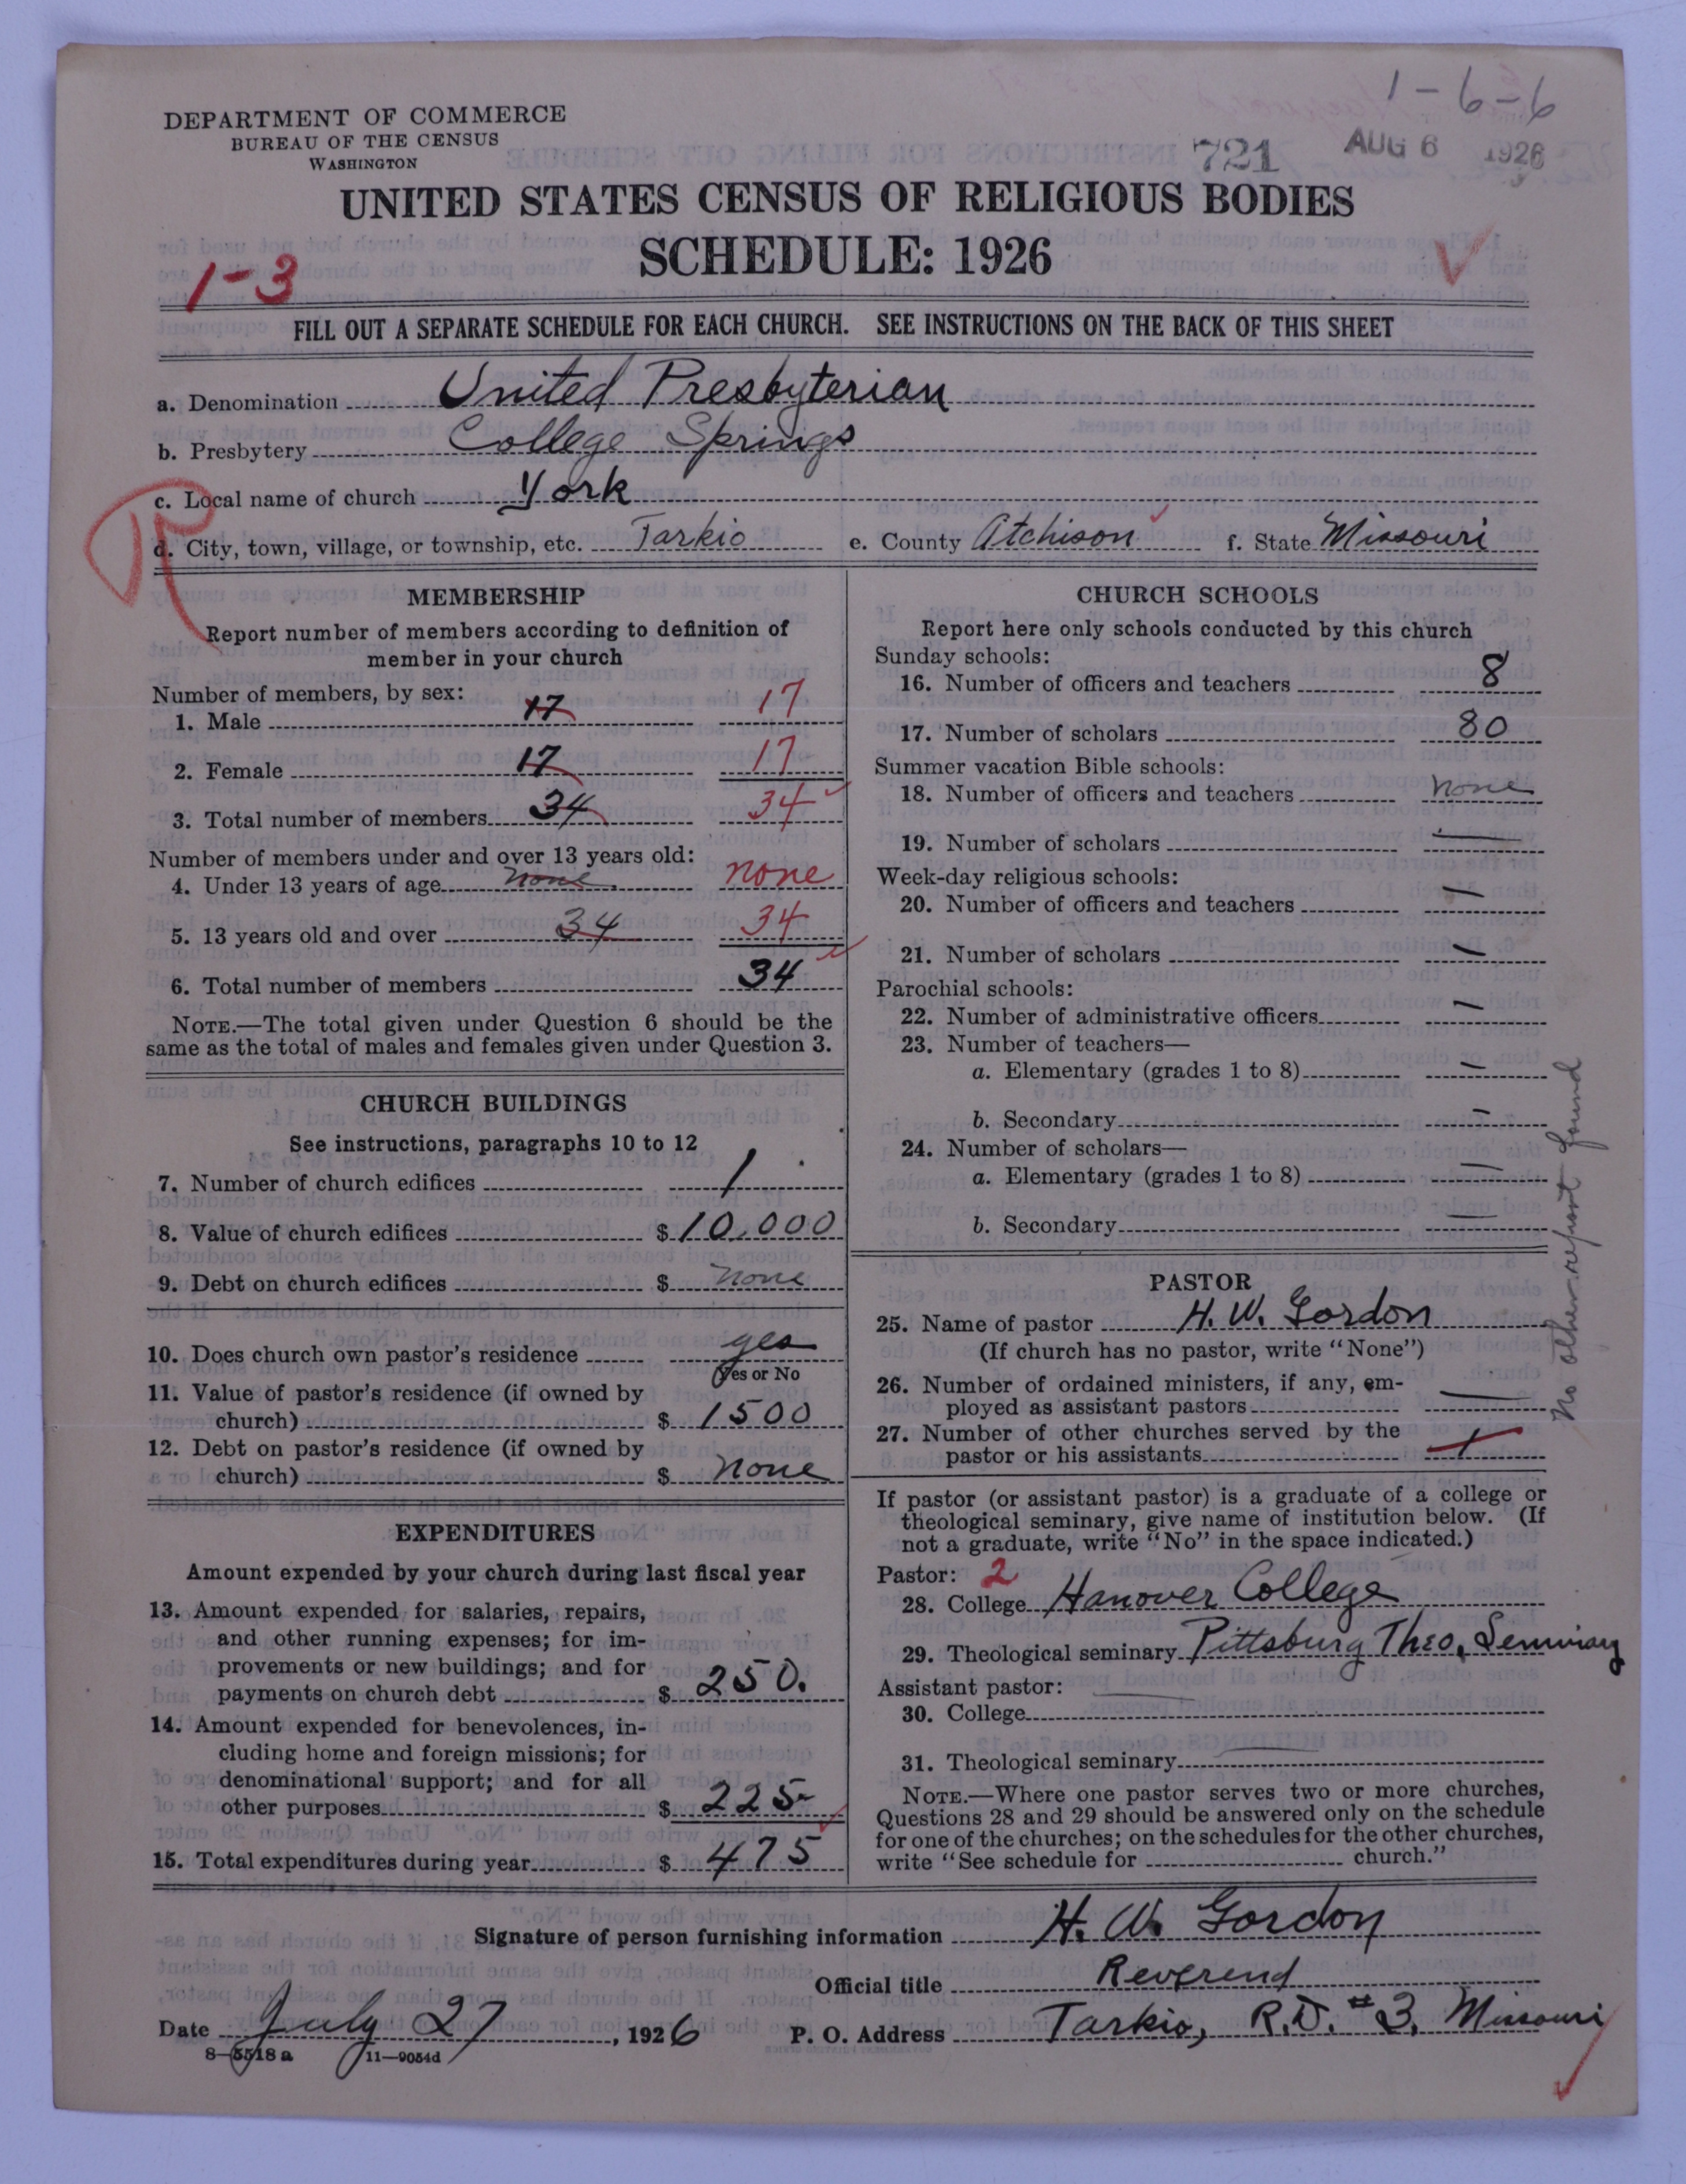 1-6-6
DEPARTMENT OF COMMERCE
BUREAU OF THE CENSUS
WASHINGTON
721 AUG 6 1926
UNITED STATES CENSUS OF RELIGIOUS BODIES
SCHEDULE: 1926
1-3
FILL OUT A SEPARATE SCHEDULE FOR EACH CHURCH. SEE INSTRUCTIONS ON THE BACK OF THIS SHEET
a. Denomination United Presbyterian
b. Presbytery College Springs
c. Local name of church York
d. City, town, village, or township, etc. Tarkio e. County Atchison f. State Missouri
MEMBERSHIP
Report number of members according to definition of
member in your church
Number of members, by sex:
1. Male 17 17
2. Female 17 17
3. Total number of members 34 34
Number of members under and over 13 years old:
4. Under 13 years of age none none
5. 13 years old and over 34 34
6. Total number of members 34
NOTE.—The total given under Question 6 should be the
same as the total of males and females given under Question 3.
CHURCH BUILDINGS
See instructions, paragraphs 10 to 12
7. Number of church edifices 1
8. Value of church edifices $ 10,000
9. Debt on church edifices $ none
10. Does church own pastor's residence yes
Yes or No
11. Value of pastor's residence (if owned by
church) $ 1500
12. Debt on pastor's residence (if owned by
church) $ none
EXPENDITURES
Amount expended by your church during last fiscal year
13. Amount expended for salaries, repairs,
and other running expenses; for im-
provements or new buildings; and for
payments on church debt $ 250.
14. Amount expended for benevolences, in-
cluding home and foreign missions; for
denominational support; and for all
other purposes $ 225-
15. Total expenditures during year $ 475
CHURCH SCHOOLS
Report here only schools conducted by this church
Sunday schools:
16. Number of officers and teachers 8
17. Number of scholars 80
Summer vacation Bible schools:
18. Number of officers and teachers none
19. Number of scholars —
Week-day religious schools:
20. Number of officers and teachers —
21. Number of scholars —
Parochial schools:
22. Number of administrative officers —
23. Number of teachers—
a. Elementary (grades 1 to 8) —
b. Secondary —
24. Number of scholars—
a. Elementary (grades 1 to 8) —
b. Secondary —
No other report found
PASTOR
25. Name of pastor H. W. Gordon
(If church has no pastor, write "None")
26. Number of ordained ministers, if any, em-
ployed as assistant pastors —
27. Number of other churches served by the
pastor or his assistants 1
If pastor (or assistant pastor) is a graduate of a college or
theological seminary, give name of institution below. (If
not a graduate, write "No" in the space indicated.)
Pastor: 2
28. College Hanover College
29. Theological seminary Pittsburg Theo. Seminary
Assistant pastor: —
30. College
31. Theological seminary —
NOTE.—Where one pastor serves two or more churches,
Questions 28 and 29 should be answered only on the schedule
for one of the churches; on the schedules for the other churches,
write "See schedule for church."
Signature of person furnishing information H. W. Gordon
Official title Reverend
Date July 27, 1926 P. O. Address Tarkio, R.D. #3, Missouri
8-5518 a 11-9054d